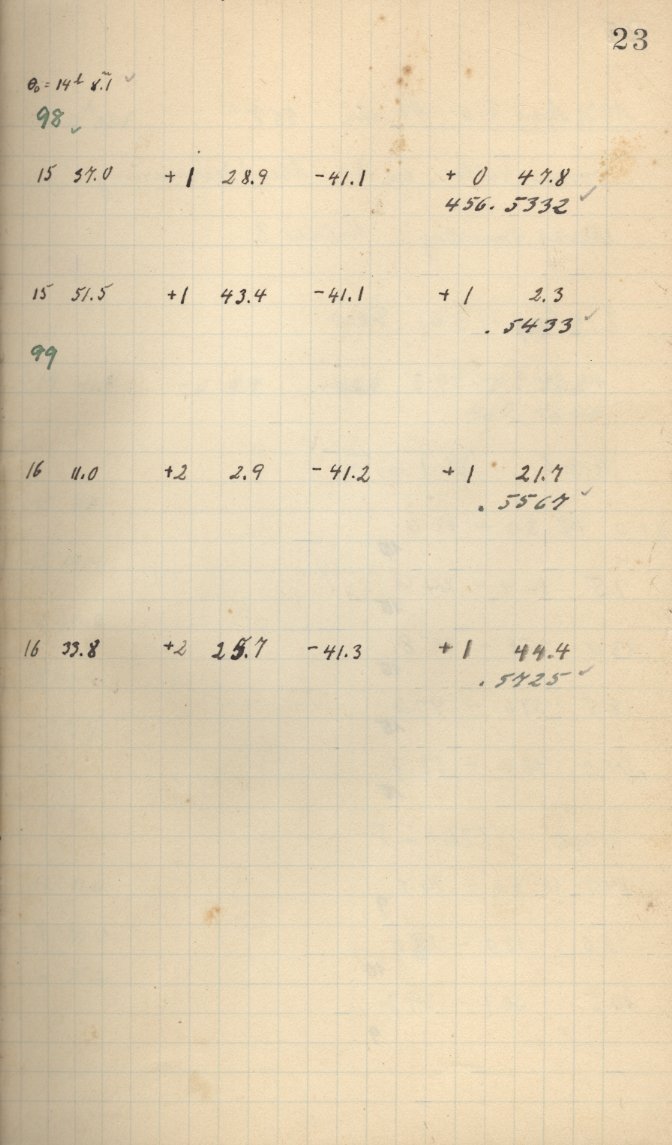 23
θ₀ = 14ʰ 8.1ᵐ ✓
98 ✓
15 37.0 +1 28.9 -41.1 + 0 47.8
456. 5332 ✓
15 51.5 +1 43.4 -41.1 + 1 2.3
. 5433 ✓
99
16 11.0 +2 2.9 -41.2 + 1 21.7
. 5567 ✓
16 33.8 +2 25.7 -41.3 + 1 44.4
. 5725 ✓